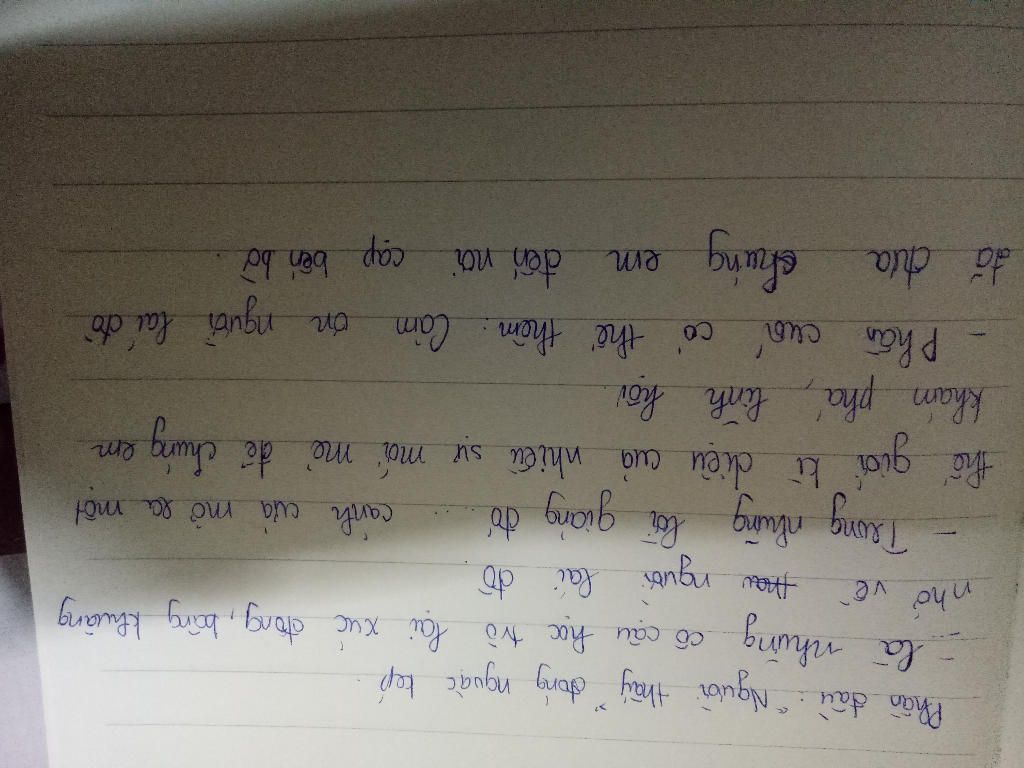 Phần đầu: "Người thầy" đóng ngoặc kép.
- Là những cô cậu học trò lại xúc động, bâng khuâng
nhớ về người lái đò
- Trong những lời giảng đó ... cánh cửa mở ra một
thế giới kì diệu của nhiều sự mới mẻ để chúng em
khám phá, lĩnh hội.
- Phần cuối có thể thêm: Cảm ơn người lái đò
đã đưa chúng em đến nơi cập bến bờ.